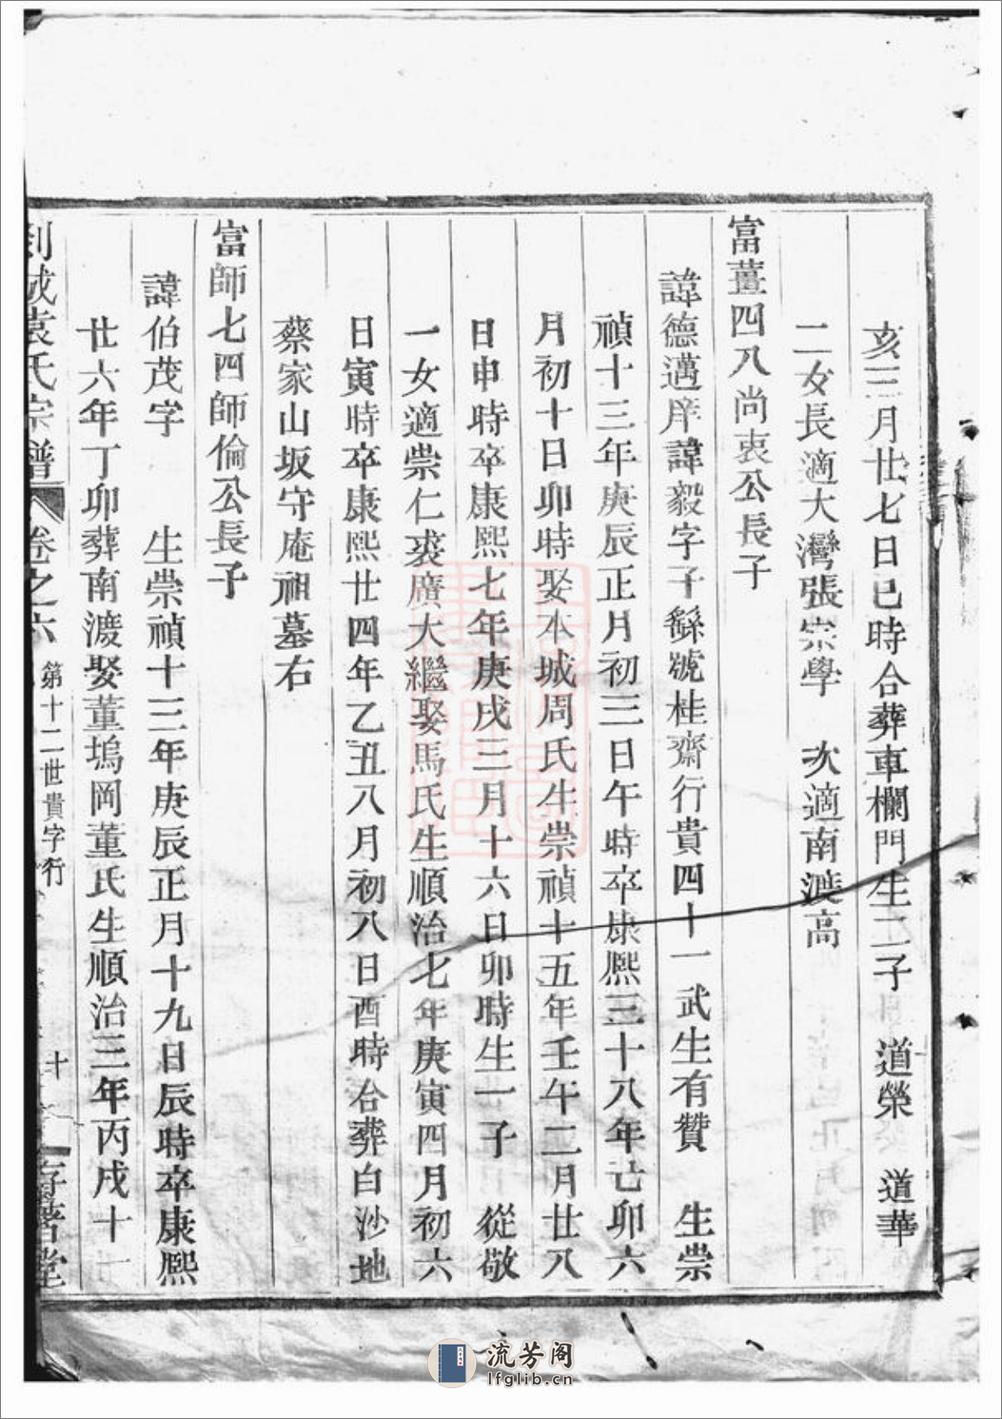 亥三月廿七日巳時合葬車欄門生二子　道榮　道華
二女長適大灣張宗學　次適南渡高
富薑四八尚衷公長子
諱德邁庠諱毅字子繇號桂齋行貴四十一武生有贊　生崇
禎十三年庚辰正月初三日午時卒康熙三十八年己卯六
月初十日卯時娶本城周氏生崇禎十五年壬午二月廿八
日申時卒康熙七年庚戌三月十六日卯時生一子　從敬
一女適崇仁裘廣大繼娶馬氏生順治七年庚寅四月初六
日寅時卒康熙廿四年乙丑八月初八日酉時合葬白沙地
蔡家山坂守庵祖墓右
富師七四師倫公長子
諱伯茂字　　生崇禎十三年庚辰正月十九日辰時卒康熙
廿六年丁卯葬南渡娶董塢岡董氏生順治三年丙戌十一
袁氏宗譜　卷之六　第十二世貴字行　十　堂
流芳阁
lfglib.cn